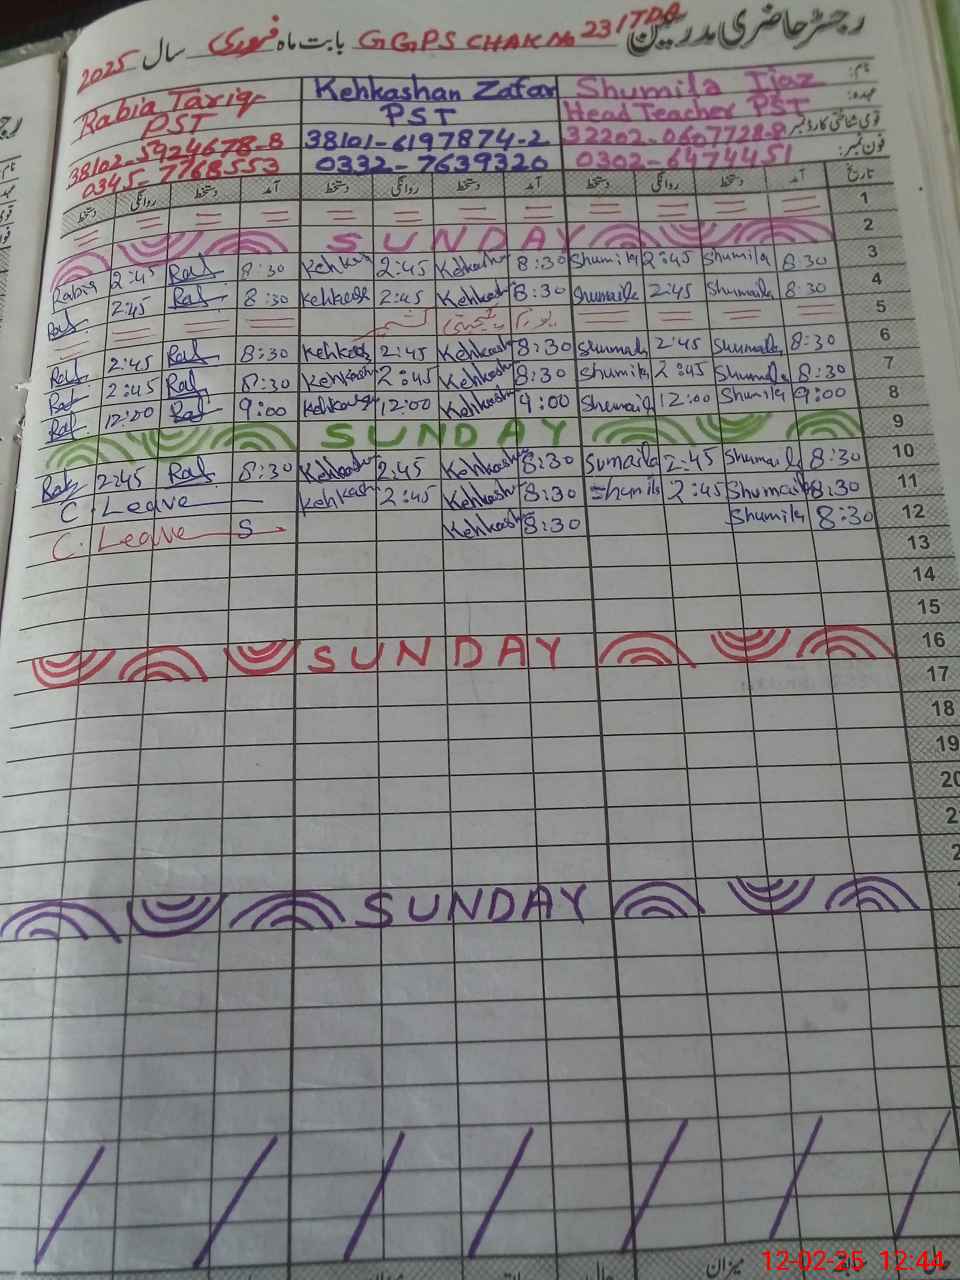 رجسٹر حاضری مدرسین GGPS CHAK No 231 TDA بابت ماہ فروری سال 2025
نام: Shumila Ijaz Kehkashan Zafar Rabia Tariq
عہدہ: Head Teacher PST PST PST
قومی شناختی کارڈ نمبر 32202-0607728-8 38101-6197874-2 38102-5924678-8
فون نمبر: 0302-6474451 0332-7639320 0345-7768553
تاریخ آمد دستخط روانگی دستخط آمد دستخط روانگی دستخط آمد دستخط روانگی دستخط
1
2 SUNDAY
3 8:30 Shumila 2:45 Shumila 8:30 Kehkashan 2:45 Kehkas 8:30 2:45 Rabia
4 8:30 Shumaila 2:45 Shumaila 8:30 Kehkash 2:45 Kehkash 8:30 2:45
5 یوم یکجہتی کشمیر
6 8:30 Shumaila 2:45 Shumaila 8:30 Kehkash 2:45 Kehkash 8:30 2:45
7 8:30 Shumaila 2:45 Shumila 8:30 Kehkash 2:45 Kehkash 8:30 2:45
8 9:00 Shumila 12:00 Shumaila 9:00 Kehkash 12:00 Kehkash 9:00 12:00
9 SUNDAY
10 8:30 Shumaila 2:45 Sumaila 8:30 Kehkash 2:45 Kehkash 8:30 2:45
11 8:30 Shumaila 2:45 Shumila 8:30 Kehkash 2:45 Kehkash C. Leave
12 8:30 Shumila 8:30 Kehkash C. Leave S
13
14
15
16 SUNDAY
17
18
19
20
2
2
SUNDAY
میزان
12-02-25 12:44